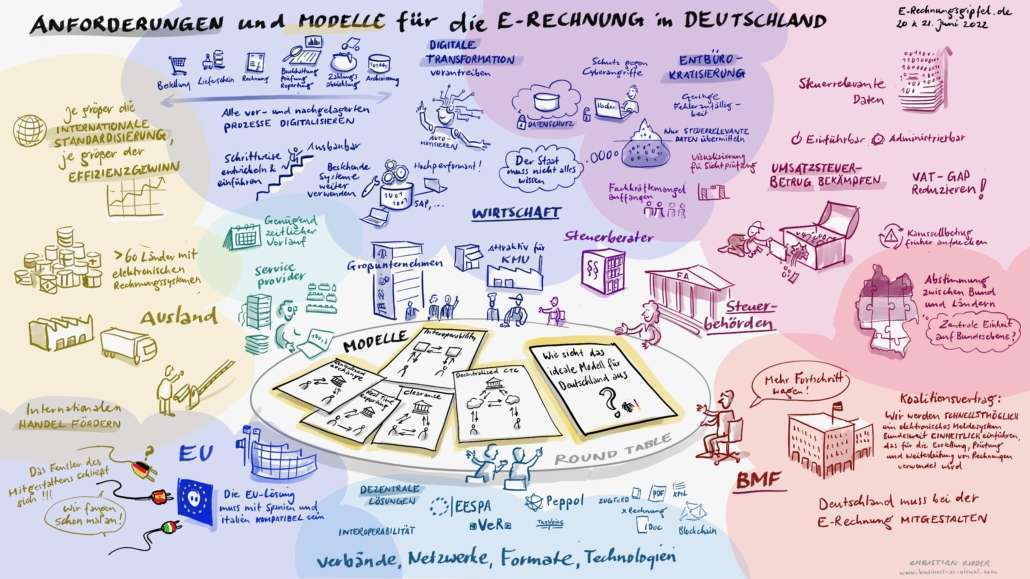 ANFORDERUNGEN und MODELLE für die E-RECHNUNG in DEUTSCHLAND
E-Rechnungsgipfel.de
20 & 21. Juni 2022
Je größer die
INTERNATIONALE
STANDARDISIERUNG,
je größer der
EFFIZIENZGEWINN
> 60 Länder mit
elektronischen
Rechnungssystemen
Ausland
Internationalen
HANDEL FÖRDERN
Bestellung
Lieferschein
Rechnung
Buchhaltung
Prüfung
Reporting
Zahlungs-
abwicklung
Archivierung
Alle vor- und nachgelagerten
PROZESSE DIGITALISIEREN
Schrittweise
entwickeln &
einführen
Ausbaubar
Bestehende
Systeme
weiter
verwenden
SAP, ...
DIGITALE
TRANSFORMATION
vorantreiben
AUTOMATISIEREN
Hochperformant!
WIRTSCHAFT
Großunternehmen
Attraktiv für
KMU
Genügend
zeitlicher
Vorlauf
Service
provider
Schutz gegen
Cyberangriffe
Hacker
DATENSCHUTZ
Der Staat
muss nicht alles
wissen
ENTBÜRO-
KRATISIERUNG
Geringe
Fehleranfällig-
keit
Nur STEUERRELEVANTE
DATEN übermitteln
Visualisierung
für Sichtprüfung
Fachkräftemangel
auffangen
Steuerberater
Steuerrelevante
Daten
Einführbar
Administrierbar
UMSATZSTEUER-
BETRUG BEKÄMPFEN
VAT-GAP
Reduzieren!
Karussellbetrug
früher aufdecken
FA
Steuer-
behörden
Abstimmung
zwischen Bund
und Ländern
Zentrale Einheit
auf Bundesebene?
MODELLE
Interoperability
Real time
reporting
Clearance
Decentralised CTC
Wie sieht das
ideale Modell für
Deutschland aus
?
ROUND TABLE
Mehr Fortschritt
wagen!
BMF
Koalitionsvertrag:
Wir werden SCHNELLSTMÖGLICH
ein elektronisches Meldesystem
bundesweit EINHEITLICH einführen,
das für die Erstellung, Prüfung
und Weiterleitung von Rechnungen
verwendet wird
Deutschland muss bei der
E-Rechnung MITGESTALTEN
Das Fenster des
Mitgestaltens schließt
sich!!!
Wir fangen
schon mal an!
EU
Die EU-Lösung
muss mit Spanien und
Italien KOMPATIBEL sein
DEZENTRALE
LÖSUNGEN
INTEROPERABILITÄT
EESPA
VeRa
Peppol
ZUGFeRD
xRechnung
PDF
XML
iDoc
Blockchain
Verbände, Netzwerke, Formate, Technologien
CHRISTIAN RIDDER
www.business-as-visual.com